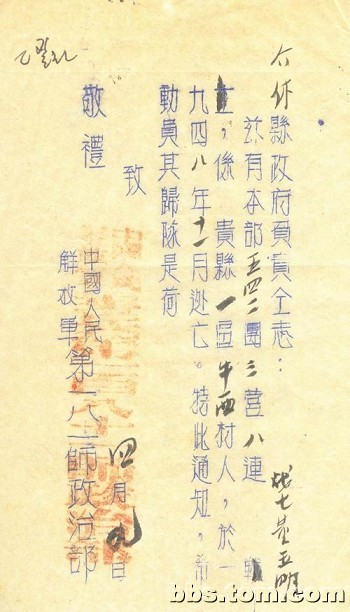 介休縣政府負責仝志：
茲有本部五四二團三營八連戰
士，係 貴縣 一區 牛西村人，於一
九四八年十一月逃亡。特此通知，希
動員其歸隊是荷
致
敬禮
中國人民
解放軍第一八一師政治部
四月九日
bbs.tom.com